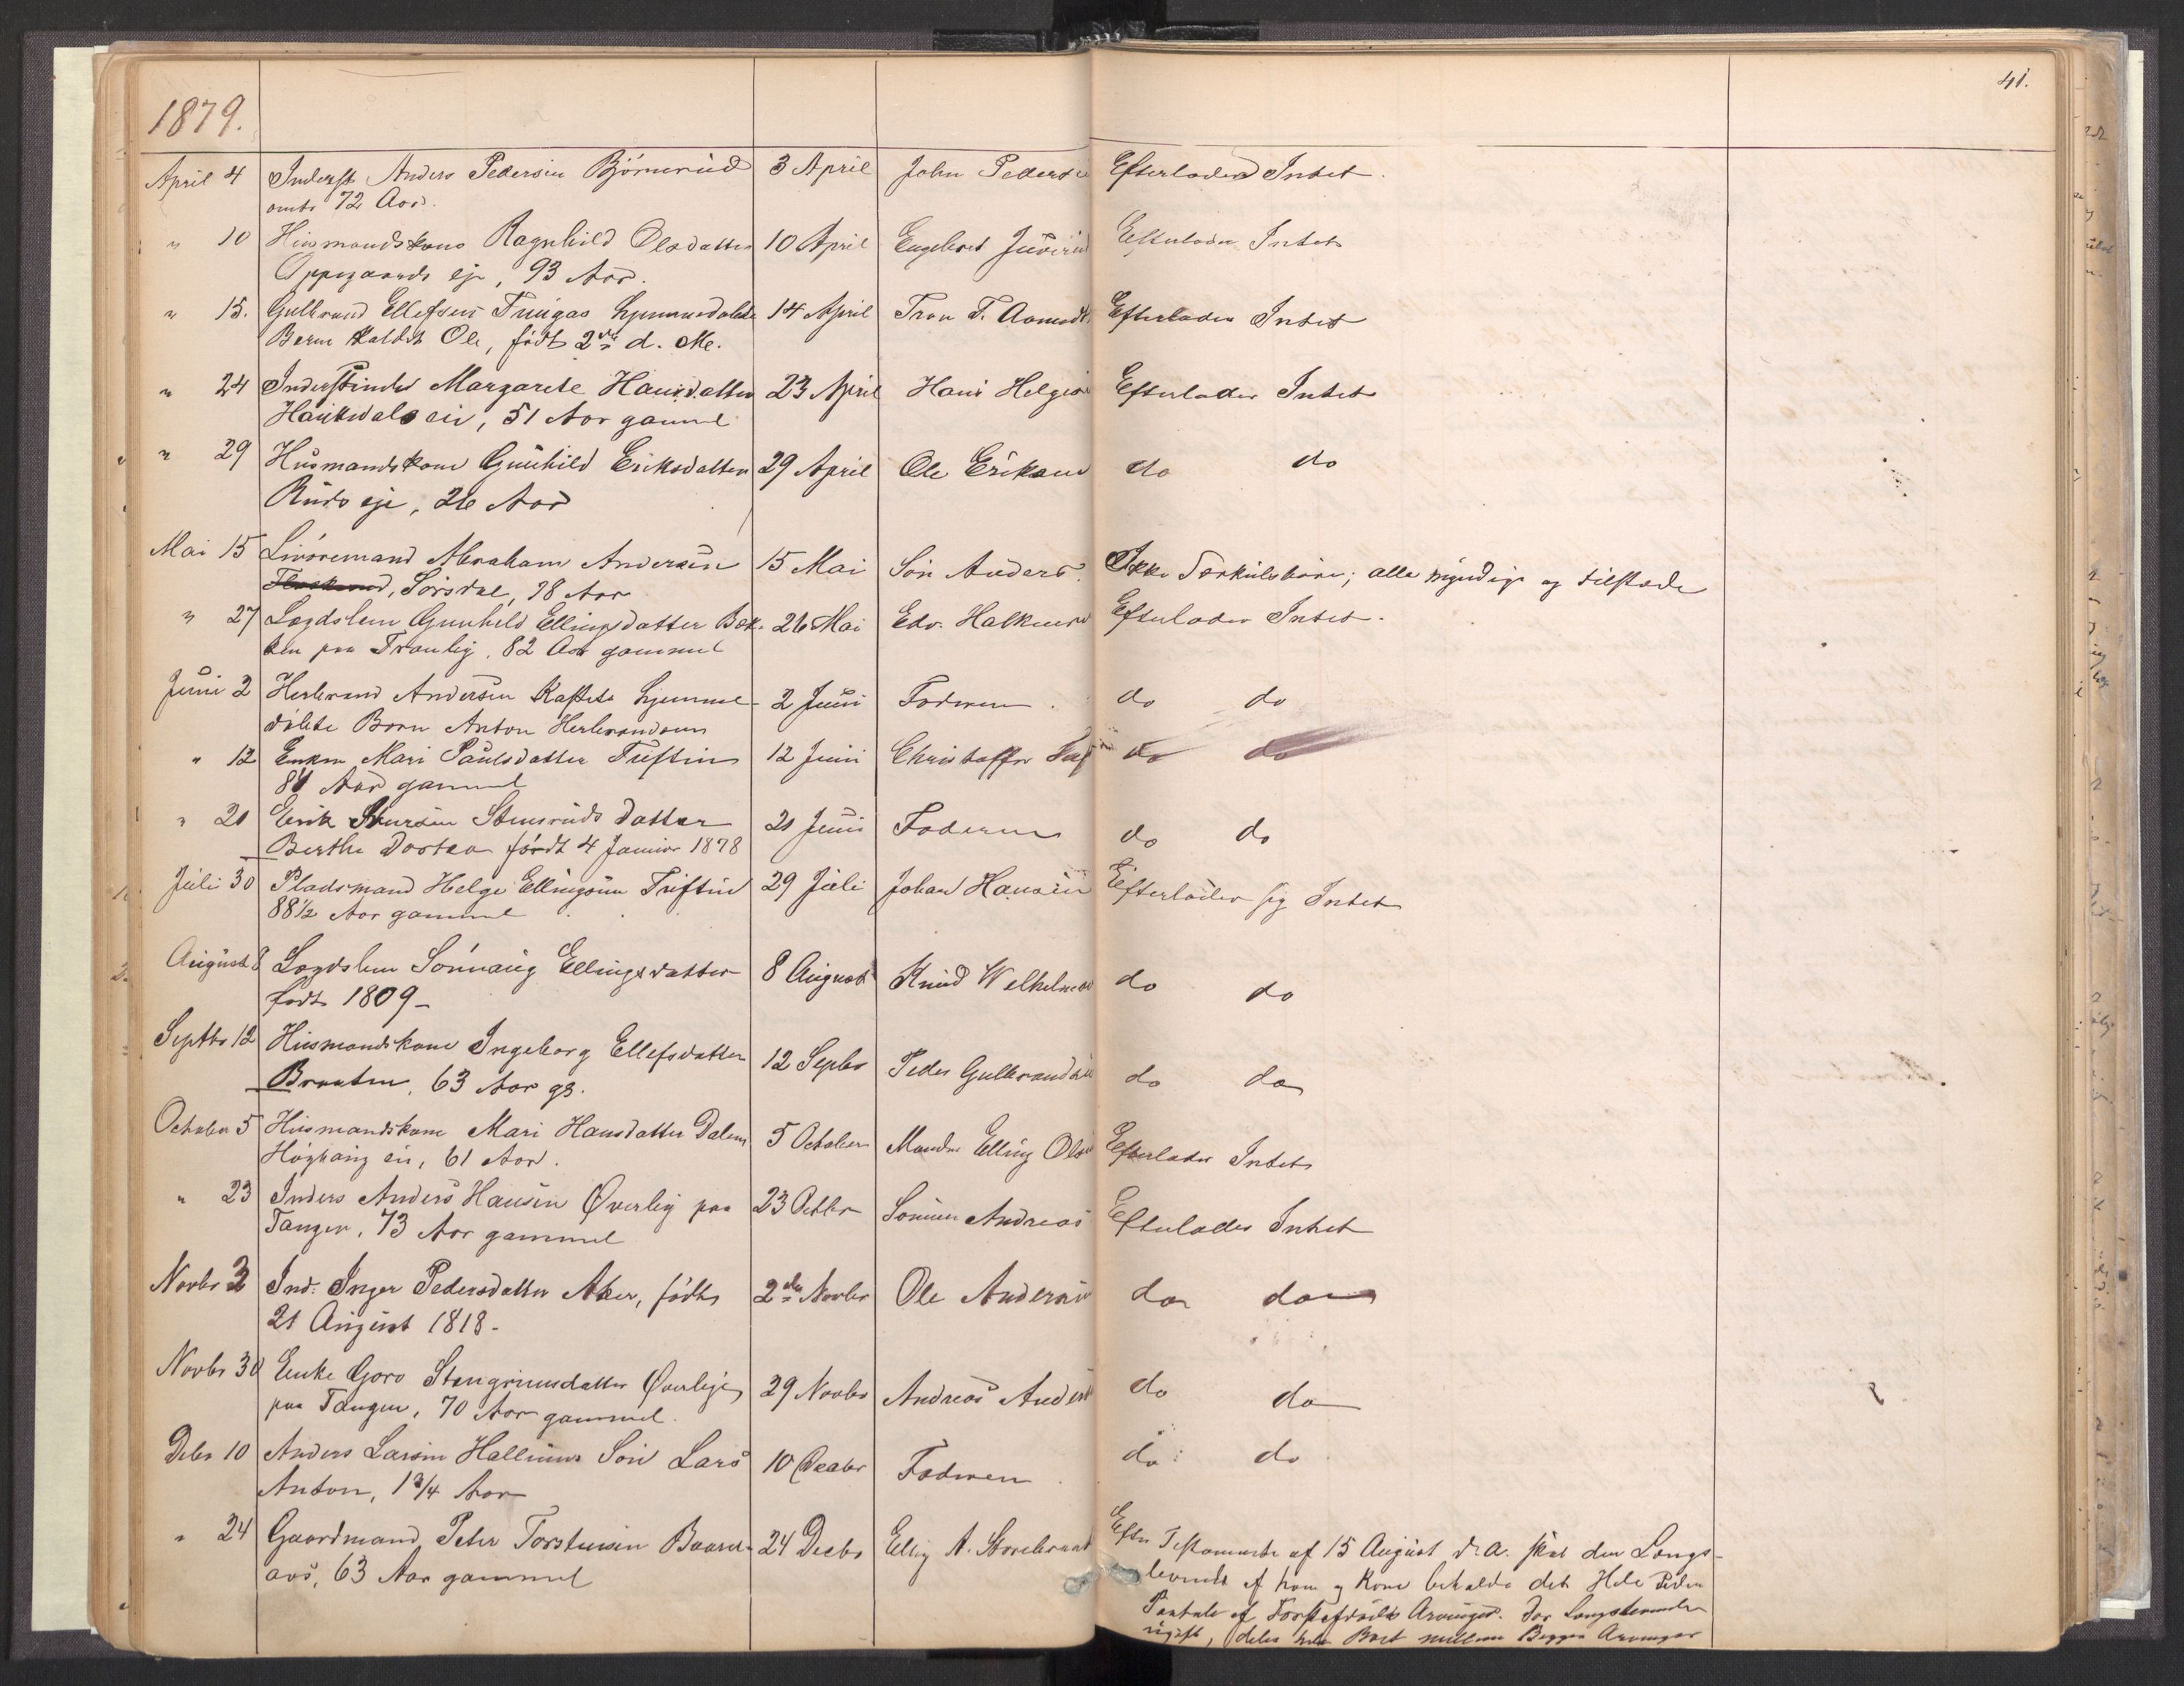 41.
1879.
April 4 Inderst Anders Pedersen Björnerud 3 April John Peders Efterlader Intet.
omtr 72 Aar.
" 10 Husmandskone Ragnhild Olsdatter 10 April Engebret Juverud Efterlader Intet
Oppegaards eje, 93 Aar.
" 15. Gulbrand Ellefsens Tuigas hjemmedøbte 14 April Tron T. Efterlader Intet
Barn kaldet Ole, født 2de d. Me.
" 24 Inderstinde Margarete Hansdatter 23 April Hans Helges Efterlader Intet
eie, 51 Aar gammel
" 29 Husmandskone Gunhild Eriksdatter 29 April Ole Eriksen do do
Ruds eje, 26 Aar
Mai 15 Livøremand Abraham Andersen 15 Mai Søn Anders. Ikke ; alle myndige og tilstede
Sørsdal, 78 Aar
" 27 Lægdslem Gunhild Ellingsdatter Bak- 26 Mai Edv. Efterlader Intet.
ken paa Tranlig, 82 Aar gammel
Juni 2 Herbrand Andersen hjemme- 2 Juni Faderen. do do
døbte Barn Anton Herbrandsen
" 12 Enken Mari Paulsdatter Tuftin 12 Juni Christoffer do do
Aar gammel
" 21 Erik Stensruds datter 21 Juni Faderen do do
Berthe Dortea født 4 Januar 1878
Juli 30 Pladsmand Helge Ellingsen Tuftin 29 Juli Johan Hansen Efterlader sig Intet
88½ Aar gammel
August 8 Lægdslem Sønnaug Ellingsdatter 8 August Knud Welhelms do do
født 1809 -
Septbr 12 Husmandskone Ingeborg Ellefsdatter 12 Septbr Peder Gulbrands do do
Braaten, 63 Aar gl.
October 5 Husmandskone Mari Hansdatter Dalen 5 October Manden Elling Ols Efterlader Intet
Høghaug eie, 61 Aar.
" 23 Inders Anders Hansen Øverlig paa 23 Octbr Sønnen Andreas Efterlader Intet
Tangen, 73 Aar gammel
Novbr 3 Ind: Inger Pedersdatter Aker, født 2den Novbr Ole Anders do do
21 August 1818 -
Novbr 30 Enke Goro Stengrimsdatter Øverlig 29 Novbr Andreas Anders do do
paa Tangen, 70 Aar gammel.
Debr 10 Anders Larsen Hallums Søn Lars 10 Decbr Faderen do do
Anton, 1¾ Aar
" 24 Gaardmand Peter Torstensen Baard- 24 Decbr Ellig A. Storebraat Efter Testamente af 15 August d. a. skal den Længs-
aas, 63 Aar gammel
levende af ham og Kone beholde det Hele Uden
af Førstafdødes Arvinger. Dør Længstlevende
ugift, deles hele Boet mellem Begges Arvinger